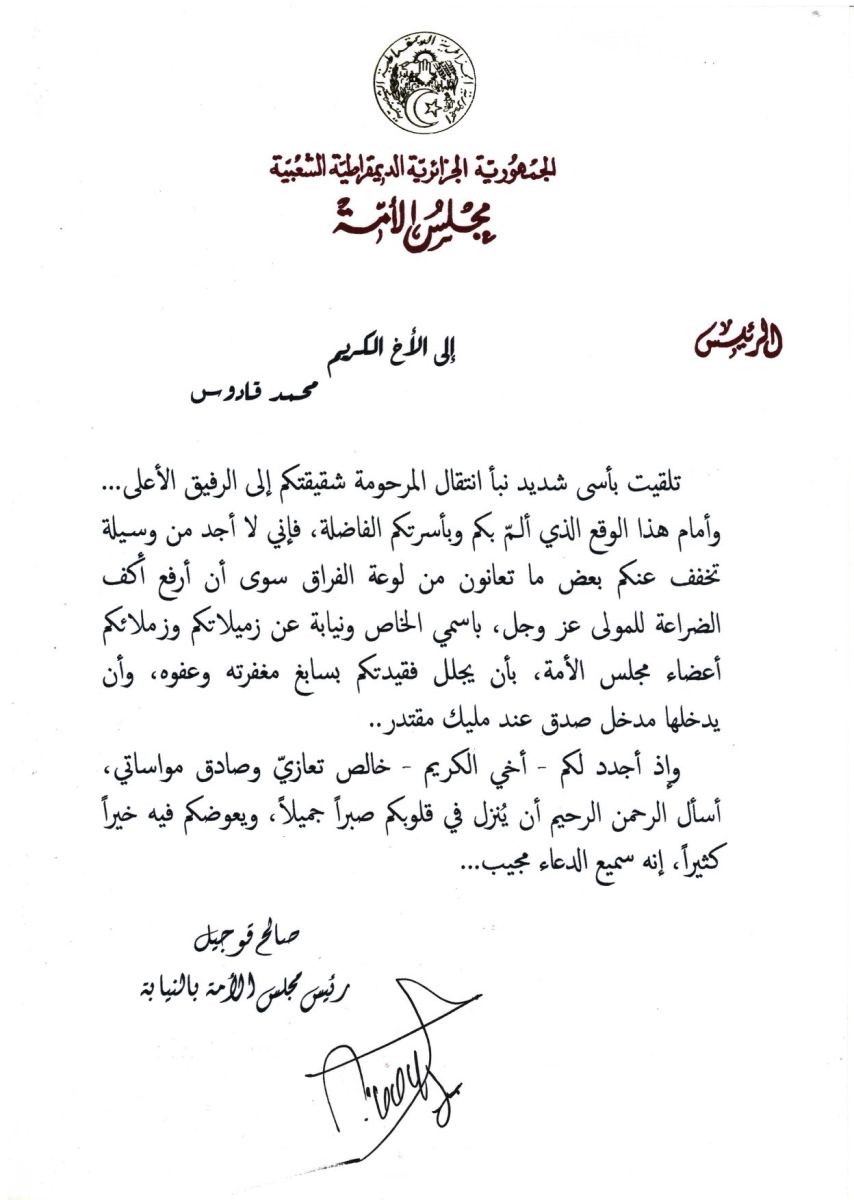 الجمهورية الجزائرية الديمقراطية الشعبية
الجمْهُوريّة الجزائريّة الديمقراطيّة الشّعبيّة
مجْلسُ الأمّة
الرئيس
إلى الأخ الكريم
محمد قادوس
تلقيت بأسى شديد نبأ انتقال المرحومة شقيقتكم إلى الرفيق الأعلى...
وأمام هذا الوقع الذي ألـمّ بكم وبأسرتكم الفاضلة، فإني لا أجد من وسيلة
تخفف عنكم بعض ما تعانون من لوعة الفراق سوى أن أرفع أكُف
الضراعة للمولى عز وجل، باسمي الخاص ونيابة عن زميلاتكم وزملائكم
أعضاء مجلس الأمة، بأن يجلل فقيدتكم بسابغ مغفرته وعفوه، وأن
يدخلها مدخل صدق عند مليك مقتدر..
وإذ أجدد لكم - أخي الكريم - خالص تعازيّ وصادق مواساتي،
أسأل الرحمن الرحيم أن يُنزل في قلوبكم صبراً جميلاً، ويعوضكم فيه خيراً
كثيراً، إنه سميع الدعاء مجيب...
صالح قوجيل
رئيس مجلس الأمة بالنيابة